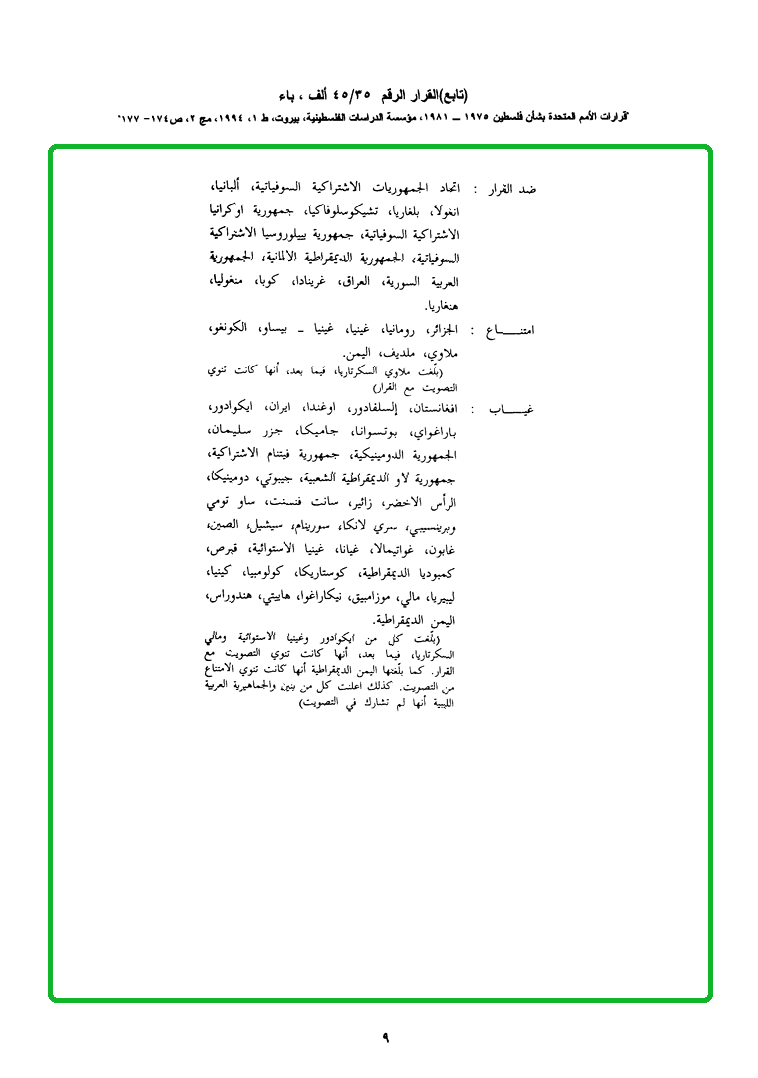 (تابع)القرار الرقم ٤٥/٣٥ ألف ، باء
"قرارات الأمم المتحدة بشأن فلسطين ١٩٧٥ ــ ١٩٨١، مؤسسة الدراسات الفلسطينية، بيروت، ط ١، ١٩٩٤، مج ٢، ص١٧٤- ١٧٧"
ضد القرار : اتحاد الجمهوريات الاشتراكية السوفياتية، ألبانيا،
انغولا، بلغاريا، تشيكوسلوفاكيا، جمهورية اوكرانيا
الاشتراكية السوفياتية، جمهورية بييلوروسيا الاشتراكية
السوفياتية، الجمهورية الديمقراطية الالمانية، الجمهورية
العربية السورية، العراق، غرينادا، كوبا، منغوليا،
هنغاريا.
امتنـــــاع : الجزائر، رومانيا، غينيا، غينيا ــ بيساو، الكونغو،
ملاوي، ملديف، اليمن.
(بلّغت ملاوي السكرتاريا، فيما بعد، أنها كانت تنوي
التصويت مع القرار)
غيـــــاب : افغانستان، إلسلفادور، اوغندا، ايران، ايكوادور،
باراغواي، بوتسوانا، جاميكا، جزر سليمان،
الجمهورية الدومينيكية، جمهورية فيتنام الاشتراكية،
جمهورية لاو الديمقراطية الشعبية، جيبوتي، دومينيكا،
الرأس الاخضر، زائير، سانت فنسنت، ساو تومي
وبرينسيبي، سري لانكا، سورينام، سيشيل، الصين،
غابون، غواتيمالا، غيانا، غينيا الاستوائية، قبرص،
كمبوديا الديمقراطية، كوستاريكا، كولومبيا، كينيا،
ليبيريا، مالي، موزامبيق، نيكاراغوا، هاييتي، هندوراس،
اليمن الديمقراطية.
(بلّغت كل من ايكوادور وغينيا الاستوائية ومالي
السكرتاريا، فيما بعد، أنها كانت تنوي التصويت مع
القرار. كما بلّغتها اليمن الديمقراطية أنها كانت تنوي الامتناع
من التصويت. كذلك اعلنت كل من بنين والجماهيرية العربية
الليبية أنها لم تشارك في التصويت)
٩